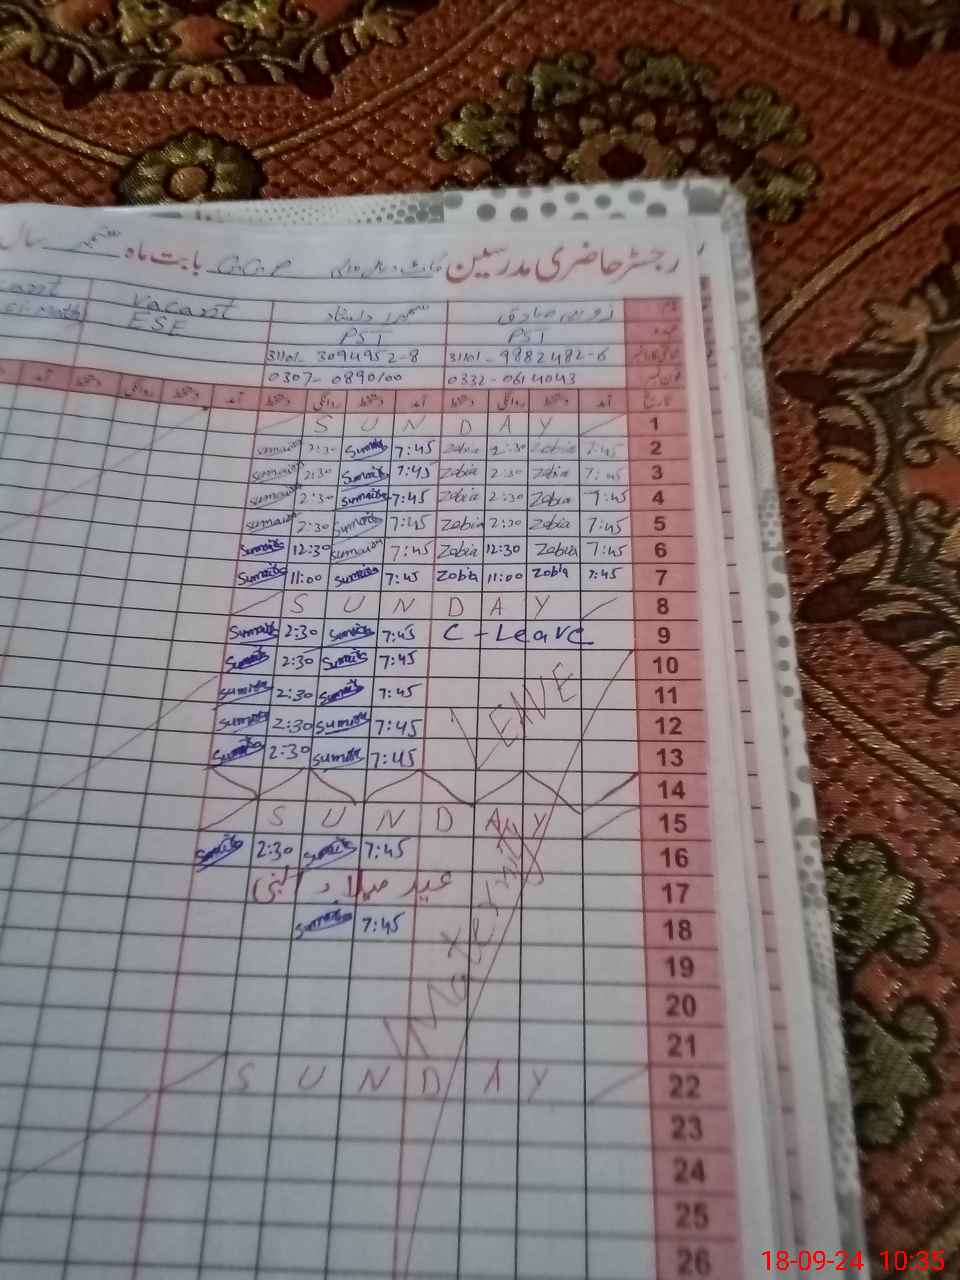 رجسٹر حاضری مدرسین G.G.P بابت ماہ ستمبر سال
نام زوبیہ صادق سمیرا دلشاد Vacant
PST PST ESE
31101-9882482-6 31101-3094952-8
0332-0614043 0307-0890100
تاریخ آمد دستخط روانگی دستخط آمد دستخط روانگی دستخط آمد دستخط روانگی دستخط آمد
S U N D A Y 1
Sumaira 2:30 Sumaira 7:45 Zobia 2:30 Zobia 7:45 2
Sumaira 2:30 Sumaira 7:45 Zobia 2:30 Zobia 7:45 3
Sumaira 2:30 Sumaira 7:45 Zobia 2:30 Zobia 7:45 4
Sumaira 2:30 Sumaira 7:45 Zobia 2:30 Zobia 7:45 5
Sumaira 12:30 Sumaira 7:45 Zobia 12:30 Zobia 7:45 6
Sumaira 11:00 Sumaira 7:45 Zobia 11:00 Zobia 7:45 7
S U N D A Y 8
Sumaira 2:30 Sumaira 7:45 C-Leave 9
Sumaira 2:30 Sumaira 7:45 10
Sumaira 2:30 Sumaira 7:45 LEAVE 11
Sumaira 2:30 Sumaira 7:45 12
Sumaira 2:30 Sumaira 7:45 13
14
S U N D A Y 15
Sumaira 2:30 Sumaira 7:45 16
عید میلاد النبی 17
Sumaira 7:45 Maternity 18
19
20
21
S U N D A Y 22
23
24
25
26
18-09-24 10:35